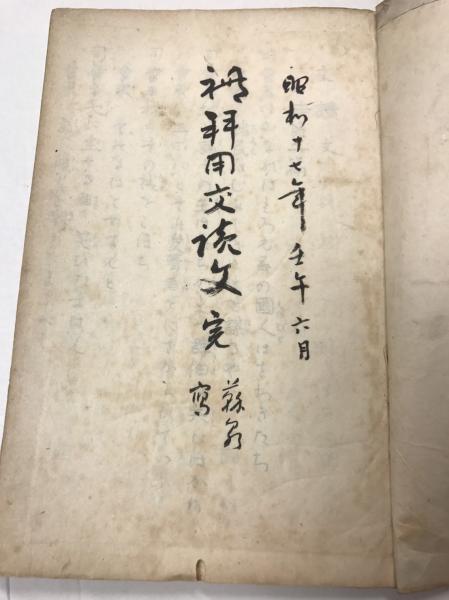 昭和十七年壬午六月
礼拜用交読文 完
蘇
寫